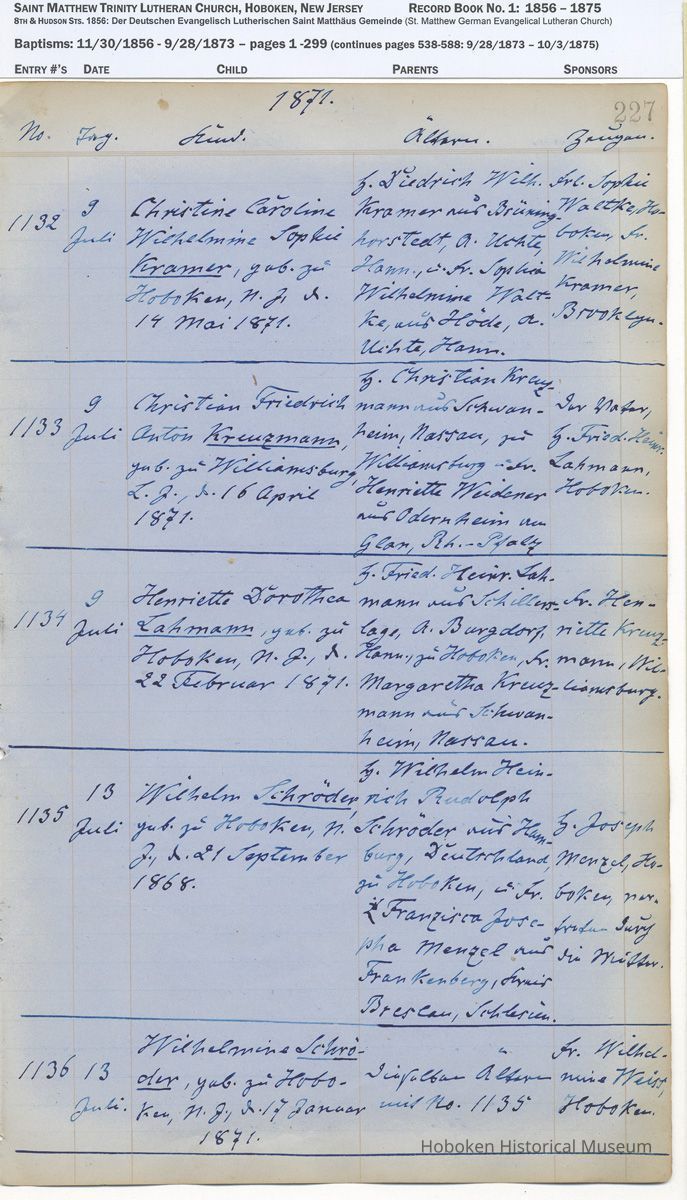 SAINT MATTHEW TRINITY LUTHERAN CHURCH, HOBOKEN, NEW JERSEY RECORD BOOK NO. 1: 1856 – 1875
8TH & HUDSON STS. 1856: Der Deutschen Evangelisch Lutherischen Saint Matthäus Gemeinde (St. Matthew German Evangelical Lutheran Church)
Baptisms: 11/30/1856 - 9/28/1873 – pages 1 -299 (continues pages 538-588: 9/28/1873 – 10/3/1875)
ENTRY #'S DATE CHILD PARENTS SPONSORS
1871.
227
No. Tag. Kind. Ältern. Zeugen.
1132
9
Juli
Christine Caroline
Wilhelmine Sophie
Kramer, geb. zu
Hoboken, N. J., d.
14 Mai 1871.
H. Diedrich Wilh.
Kramer aus Brüning-
horstedt, A. Uchte,
Hann., u. Fr. Sophie
Wilhelmine Walt-
ke, aus Höde, A.
Uchte, Hann.
Frl. Sophie
Waltke, Ho-
boken, Fr.
Wilhelmine
Kramer,
Brooklyn.
1133
9
Juli
Christian Friedrich
Anton Kreuzmann,
geb. zu Williamsburg,
L. J., d. 16 April
1871.
H. Christian Kreuz-
mann aus Schwan-
heim, Nassau, zu
Williamsburg u. Fr.
Henriette Weidener
aus Odernheim am
Glan, Rh.-Pfalz
Der Vater,
H. Fried. Heinr.
Lahmann,
Hoboken.
1134
9
Juli
Henriette Dorothea
Lahmann, geb. zu
Hoboken, N. J., d.
22 Februar 1871.
H. Fried. Heinr. Lah-
mann aus Schillers-
lage, A. Burgdorf,
Hann., zu Hoboken, Fr.
Margaretha Kreuz-
mann aus Schwan-
heim, Nassau.
Fr. Hen-
riette Kreuz-
mann, Wil-
liamsburg.
1135
13
Juli
Wilhelm Schröder,
geb. zu Hoboken, N.
J., d. 21 September
1868.
H. Wilhelm Hein-
rich Rudolph
Schröder aus Ham-
burg, Deutschland,
zu Hoboken, u. Fr.
Franzisca Jose-
pha Menzel aus
Frankenberg, Kreis
Breslau, Schlesien.
H. Joseph
Menzel, Ho-
boken, ver-
treten durch
die Mutter.
1136
13
Juli.
Wilhelmine Schrö-
der, geb. zu Hobo-
ken, N. J., d. 17 Januar
1871.
Dieselben Ältern
wie No. 1135
Fr. Wilhel-
mine Weiss,
Hoboken.
Hoboken Historical Museum